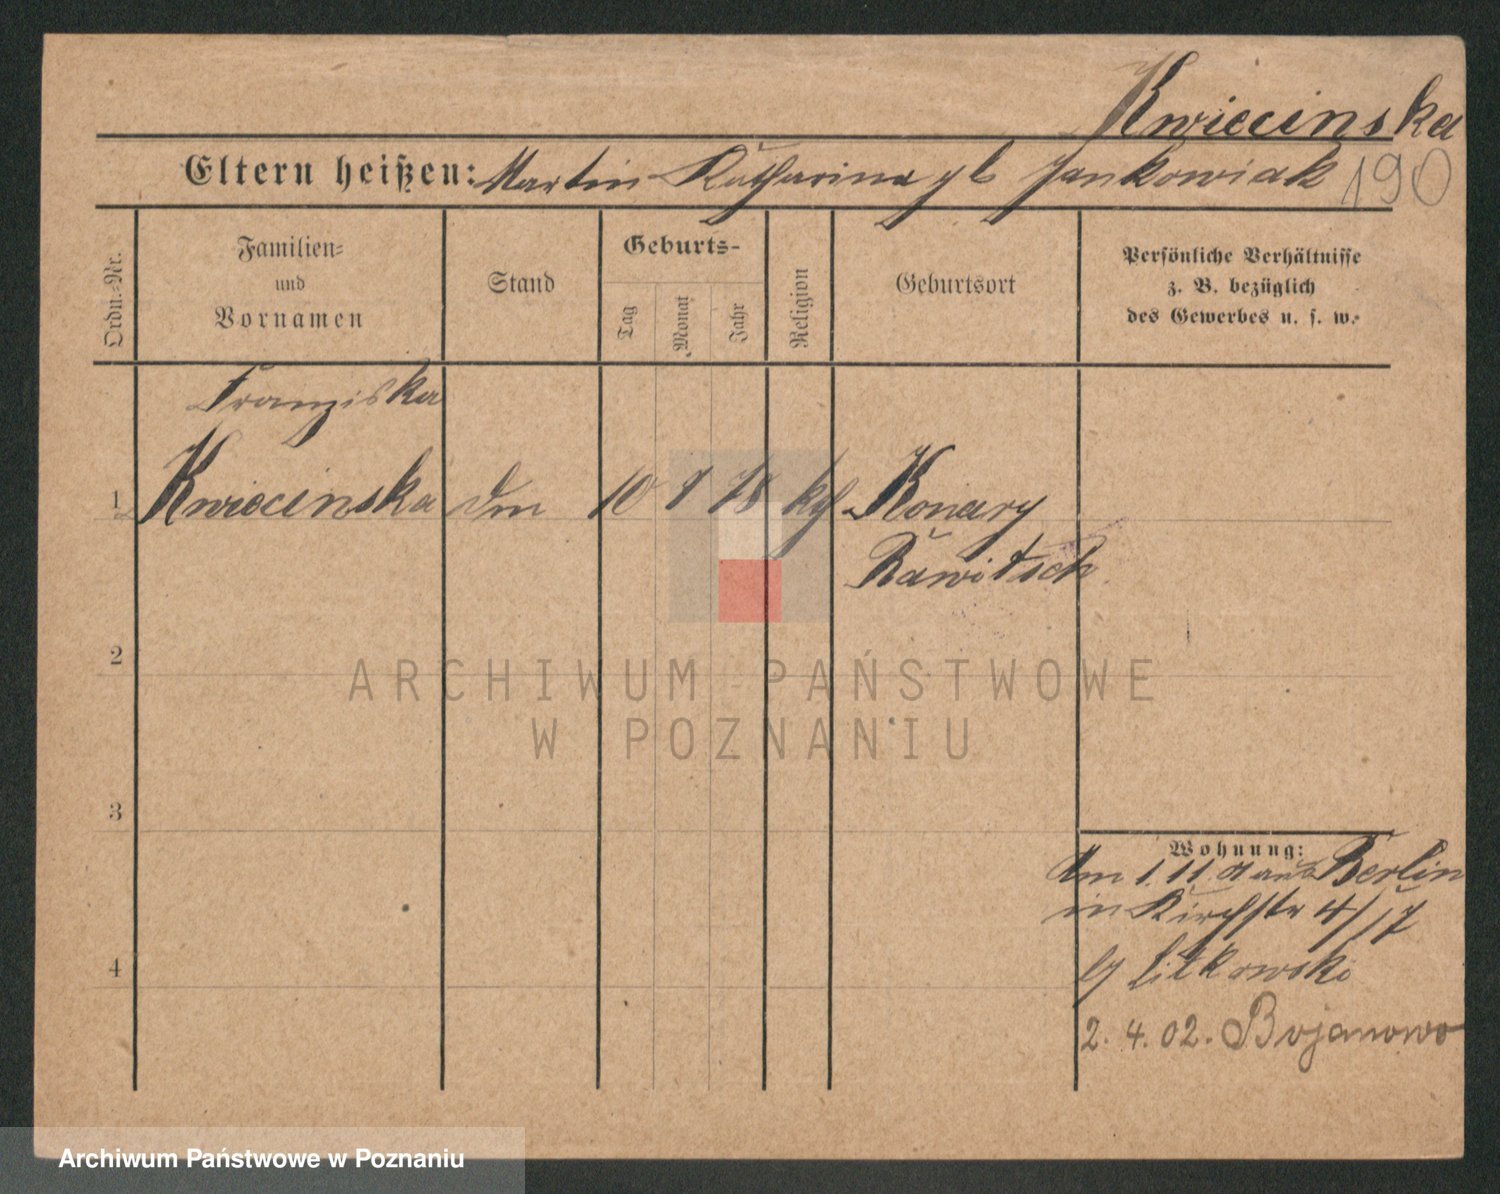 Kwiecinska
Eltern heißen: Martin Katharina gb Jankowiak 190
Ordn.-Nr.
Familien-
und
Vornamen
Stand
Geburts-
Tag
Monat
Jahr
Religion
Geburtsort
Persönliche Verhältnisse
z. B. bezüglich
des Gewerbes u. s. w.
Franziska
1 Kwiecinska 10 78 kg Konary
Rawitsch
2
ARCHIWUM PAŃSTWOWE
W POZNANIU
3
Wohnung:
Am 1.11. aus Berlin
in Kirchstr 4/17
4
2.4.02. Bojanowo
Archiwum Państwowe w Poznaniu